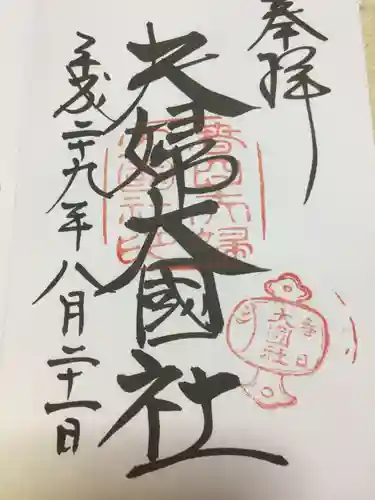 奉拝
夫婦大國社
平成二十九年八月二十一日
春日
大國社